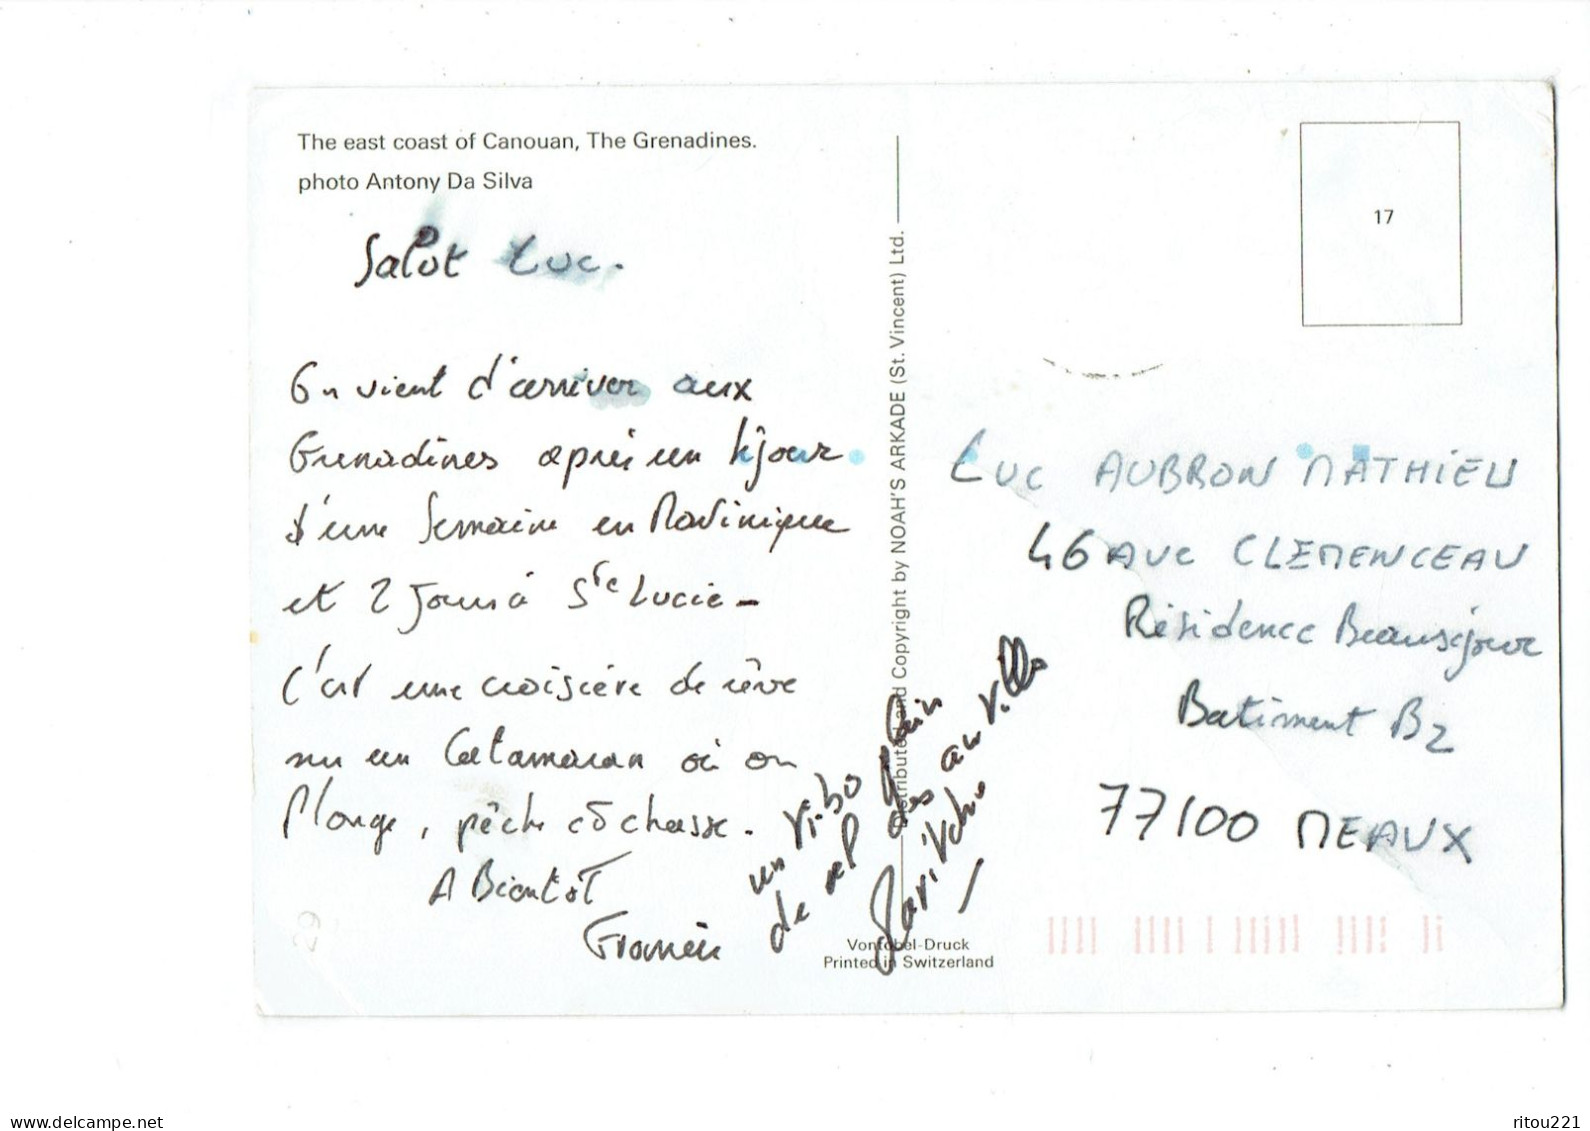 The east coast of Canouan, The Grenadines.
photo Antony Da Silva
Salut Luc.
On vient d'arriver aux
Grenadines après un séjour
d'une Semaine en Martinique
et 2 jours à Ste Lucie -
C'est une croisière de rêve
sur un Catamaran où on
Plonge, pêche et chasse.
A Bientôt
Francis
un
de
Distributed and Copyright by NOAH'S ARKADE (St. Vincent) Ltd.
Vontobel-Druck
Printed in Switzerland
17
Luc AUBRON MATHIEU
46 AVE CLEMENCEAU
Résidence Beauséjour
Batiment B2
77100 MEAUX
29
www.delcampe.net
ritou221